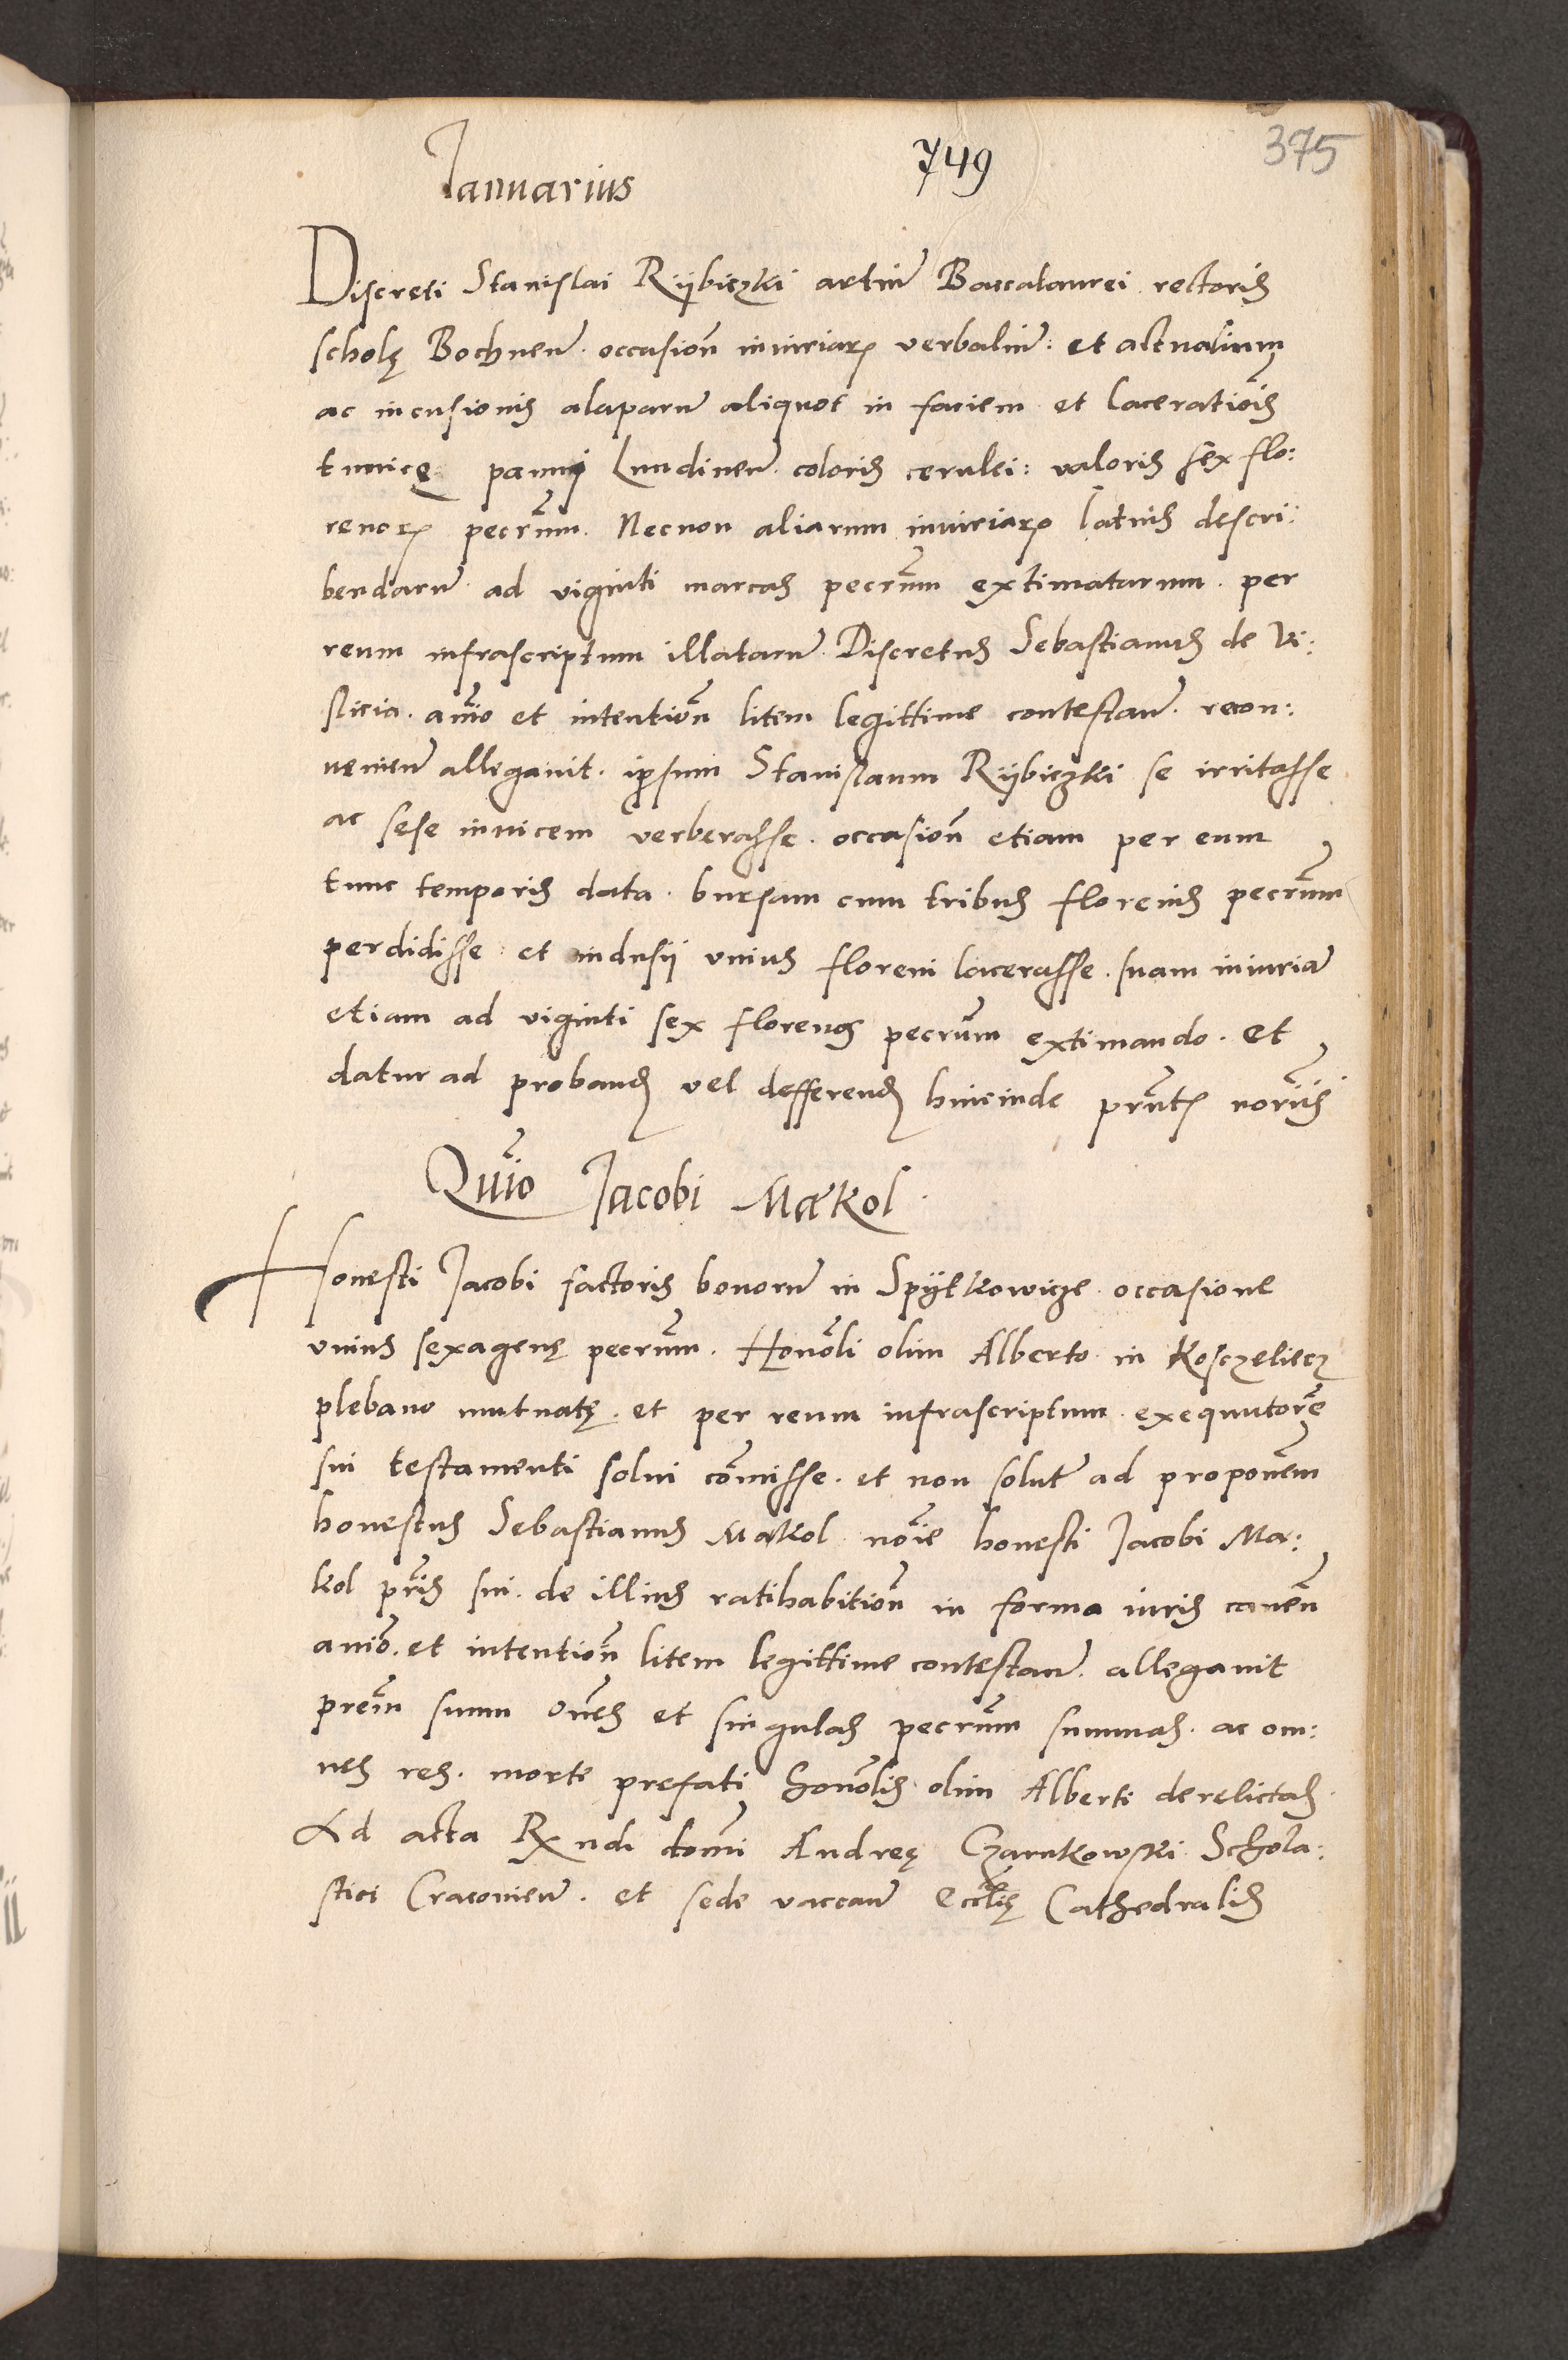 Ianuarius
749
375
Discreti Stanislai Rÿbiczki artiũ Baccalaurei rectoris
scholę Bochneñ. occasioñ iniuriarꝝ verbaliũ: et actualium
ac incusionis alaparũ aliquot in faciem et laceratiõis
tunicę panni Lundineñ. coloris cerulei: valoris sex flo:
renorꝝ pecũm. Necnon aliarum iniuriarꝝ latius descri:
bendarũ ad viginti marcas pecũm extimatarum. per
reum infrascriptum illatarũ. Discretus Sebastianus de Vi:
slicia. aĩo et intentioñ litem legittime contestañ. recon:
ueniẽn allegauit. ip̃sum Stanislaum Rÿbiczki se irritasse
ac sese inuicem verberasse. occasioñ etiam per eum
tunc temporis data. bursam cum tribus florenis pecũm
perdidisse: et indusii vnius floreni lacerasse. suam iniuriã
etiam ad viginti sex florenos pecũm extimando. et
datur ad probanđ vel defferenđ hincinde pñtꝭ nõriis
Quĩo Jacobi Makol.
Honesti Jacobi factoris bonorũ in Spÿtkowicze occasione
vnius sexagenę pecũm. Honõli olim Alberto in Kosczeliecz
plebano mutuatę. et per reum infrascriptum. exequutorẽ
sui testamenti solui cõmisse. et non solut̃ ad proponẽm
honestus Sebastianus Makol noĩe honesti Jacobi Ma:
kol pr̃is sui. de illius ratihabitioñ in forma iuris caueñ
aniõ. et intentioñ litem legittime contestañ. allegauit
prẽm suum om̃es et singulas pecũm summas. ac om:
nes res. morte prefati Honõlis olim Alberti derelictas.
Ad acta Rxndi dom̃i Andreę Czarnkowski Schola:
stici Cracouieñ. et sede vaccañ Eccl̃ię Cathedralis